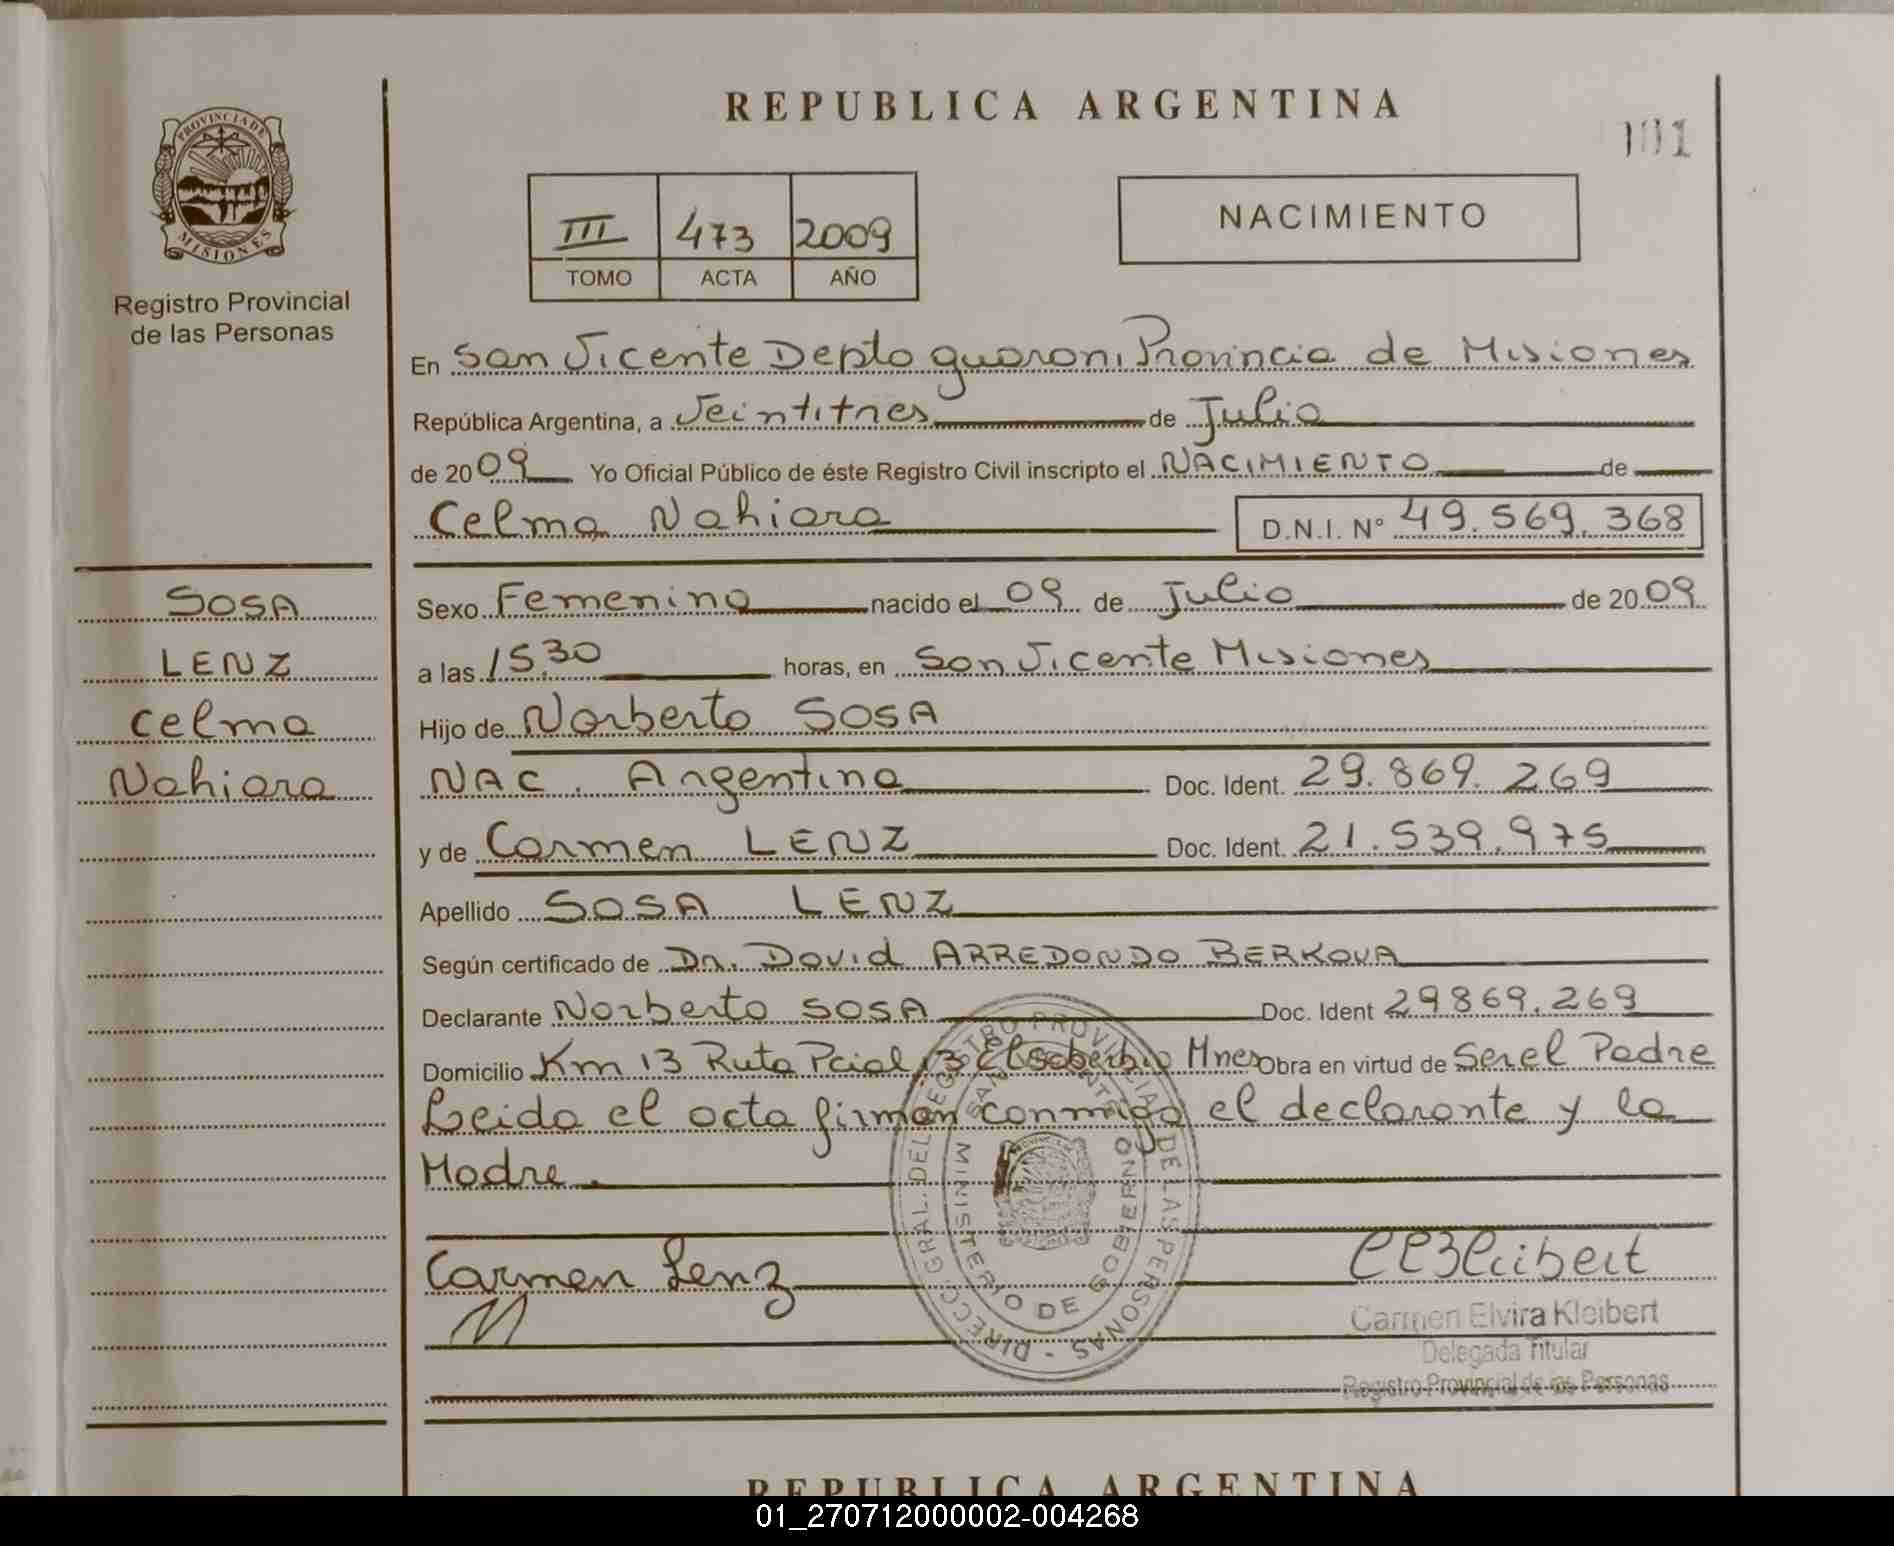 REPUBLICA ARGENTINA
101
PROVINCIA DE
MISIONES
Registro Provincial
de las Personas
III 473 2009
TOMO ACTA AÑO
NACIMIENTO
En San Vicente Depto guarani Provincia de Misiones
República Argentina, a Veintitres de Julio
de 2009 Yo Oficial Público de éste Registro Civil inscripto el NACIMIENTO de
Celma Nahiara D.N.I. N° 49.569.368
SOSA
LENZ
Celma
Nahiara
Sexo Femenino nacido el 09 de Julio de 2009
a las 15,30 horas, en San Vicente Misiones
Hijo de Norberto SOSA
NAC. Argentina Doc. Ident. 29.869.269
y de Carmen LENZ Doc. Ident. 21.539.975
Apellido SOSA LENZ
Según certificado de Dr. David ARREDONDO BERKOVA
Declarante Norberto SOSA Doc. Ident 29869.269
Domicilio Km 13 Ruta Pcial 13 El soberbio Mnes Obra en virtud de Ser el Padre
Leida el acta firman conmigo el declarante y la
Madre.
DIRECC. GRAL. DEL REGISTRO PROVINCIAL DE LAS PERSONAS -
SAN VICENTE
MINISTERIO DE GOBIERNO
Carmen Lenz
CEKleibert
Carmen Elvira Kleibert
Delegada Titular
Registro Provincial de las Personas
REPUBLICA ARGENTINA
01_270712000002-004268